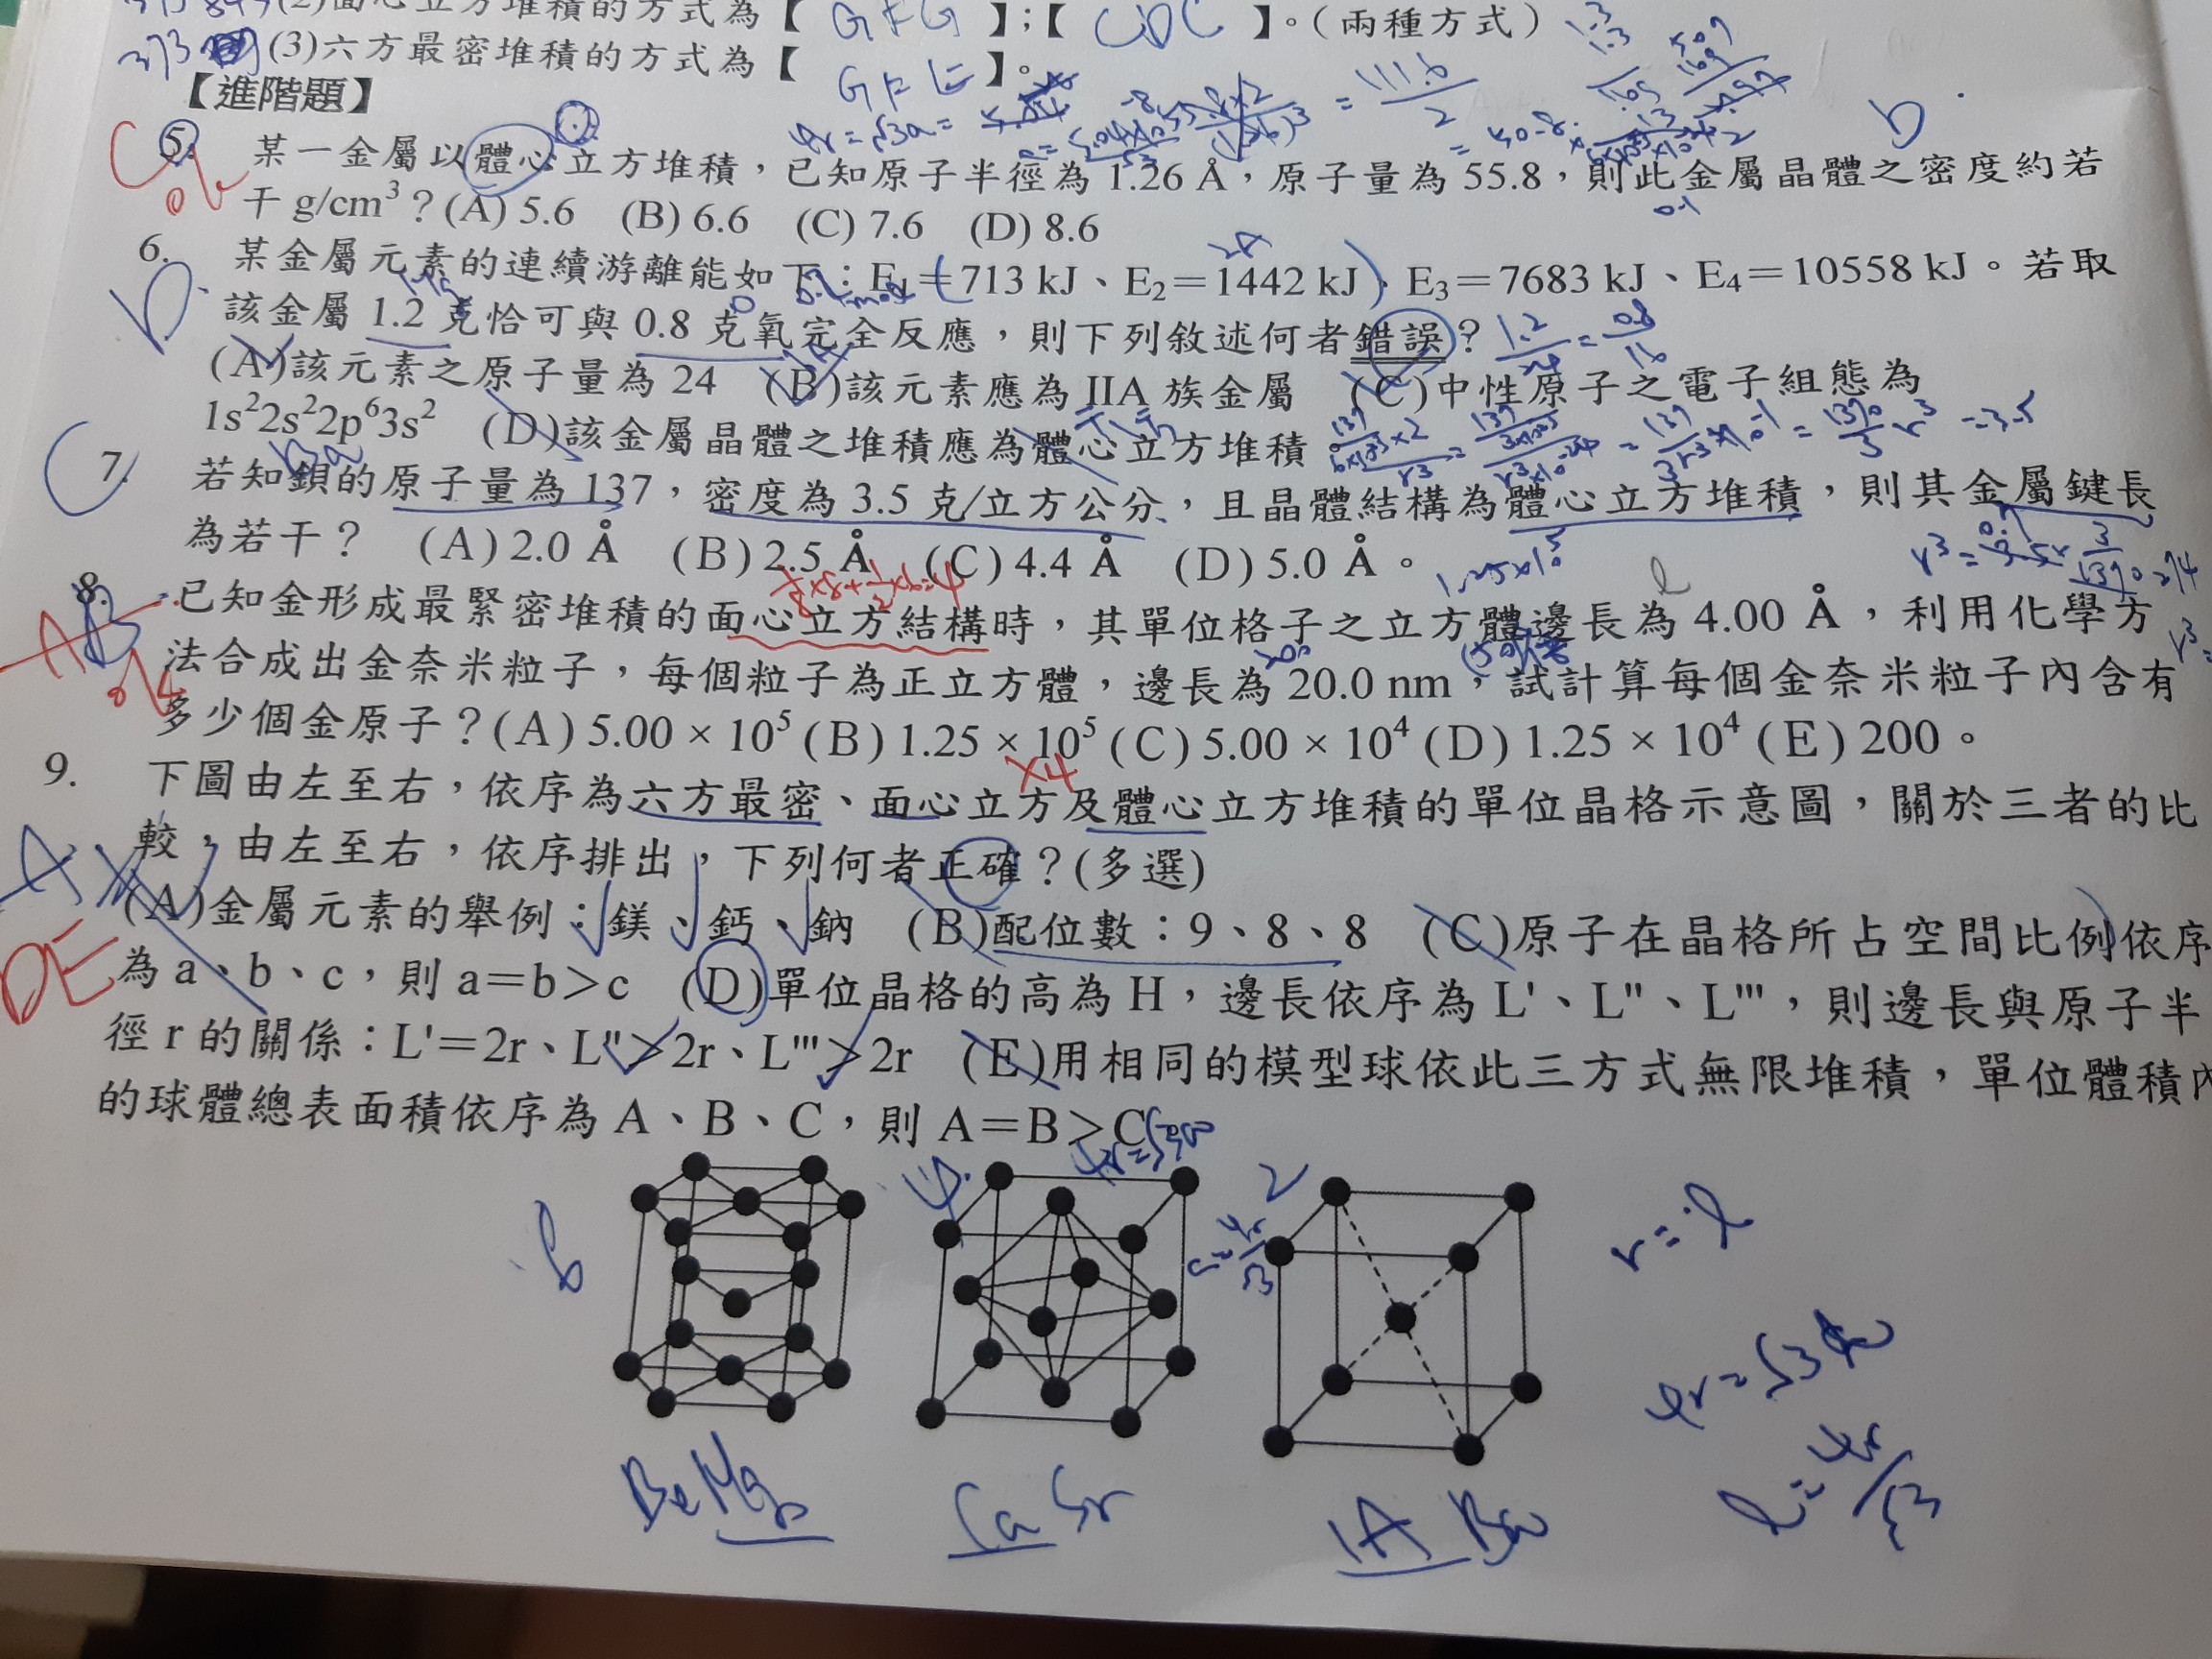 (2)面心立方堆積的方式為【 GFG 】;【 CDC 】。(兩種方式)
(3)六方最密堆積的方式為【 GFE 】。
【進階題】
5. 某一金屬以體心立方堆積，已知原子半徑為 1.26 Å，原子量為 55.8，則此金屬晶體之密度約若
干 g/cm³？(A) 5.6 (B) 6.6 (C) 7.6 (D) 8.6
6. 某金屬元素的連續游離能如下：E₁＝713 kJ、E₂＝1442 kJ、E₃＝7683 kJ、E₄＝10558 kJ。若取
該金屬 1.2 克恰可與 0.8 克氧完全反應，則下列敘述何者錯誤？
(A)該元素之原子量為 24 (B)該元素應為 IIA 族金屬 (C)中性原子之電子組態為
1s²2s²2p⁶3s² (D)該金屬晶體之堆積應為體心立方堆積
7. 若知鋇的原子量為 137，密度為 3.5 克/立方公分，且晶體結構為體心立方堆積，則其金屬鍵長
為若干？ (A) 2.0 Å (B) 2.5 Å (C) 4.4 Å (D) 5.0 Å。
8. 已知金形成最緊密堆積的面心立方結構時，其單位格子之立方體邊長為 4.00 Å，利用化學方
法合成出金奈米粒子，每個粒子為正立方體，邊長為 20.0 nm，試計算每個金奈米粒子內含有
多少個金原子？(A) 5.00 × 10⁵ (B) 1.25 × 10⁵ (C) 5.00 × 10⁴ (D) 1.25 × 10⁴ (E) 200。
×4
9. 下圖由左至右，依序為六方最密、面心立方及體心立方堆積的單位晶格示意圖，關於三者的比
較，由左至右，依序排出，下列何者正確？(多選)
(A)金屬元素的舉例：鎂、鈣、鈉 (B)配位數：9、8、8 (C)原子在晶格所占空間比例依序
為 a、b、c，則 a＝b＞c (D)單位晶格的高為 H，邊長依序為 L'、L''、L'''，則邊長與原子半
徑 r 的關係：L'＝2r、L''＞2r、L'''＞2r (E)用相同的模型球依此三方式無限堆積，單位體積內
的球體總表面積依序為 A、B、C，則 A＝B＞C。
DE
6
4
2
Be Mg
Ca Sr
IA Ba